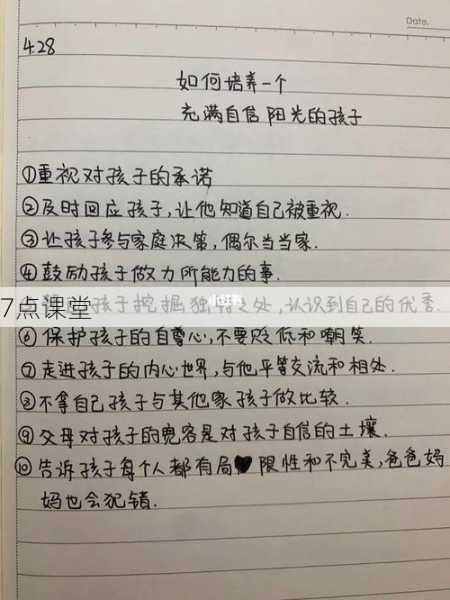 Date.
4.28
如何培养一个
充满自信阳光的孩子
①重视对孩子的承诺
②及时回应孩子,让他知道自己被重视.
③让孩子参与家庭决策,偶尔当当家.
④鼓励孩子做力所能力的事.
7点课堂
小红书
孩子挖掘独特之处,认识到自己的优秀.
⑥保护孩子的自尊心,不要贬低和嘲笑.
⑦走进孩子的内心世界,与他平等交流和相处.
⑧不拿自己孩子与其他家孩子做比较.
⑨父母对孩子的宽容是对孩子自信的土壤.
⑩告诉孩子每个人都有局限性和不完美,爸爸妈
妈也会犯错.